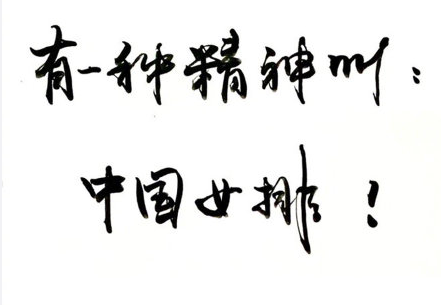 有一种精神叫：
中国女排！